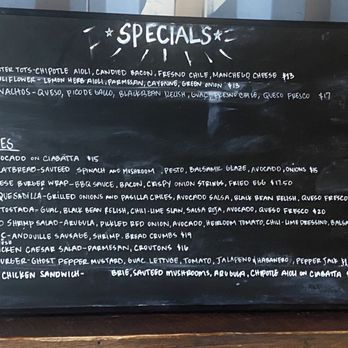 SPECIALS
TER TOTS-CHIPOTLE AIOLI, CANDIED BACON, FRESNO CHILE, MANCHEGO CHEESE $13
ULIFLOWER-LEMON HERB AIOLI, PARMESAN, CAYENNE, GREEN ONION $13
VALHOS-QUESO, PICO DE GALLO, BLACK BEAN RELISH, GUAC, FRESNO CHILE, QUESO FRESCO $17
ES
OCADO ON CIABATTA $15
ATBREAD-SAUTEED SPINACH AND MUSHROOM, PESTO, BALSAMIC GLAZE, AVOCADO, ONIONS $15
ESE BURGER WRAP-BBQ SAUCE, BACON, CRISPY ONION STRINGS, FRIED EGG $17.50
QUESADILLA-GRILLED ONIONS AND PASILLA CHILES, AVOCADO SALSA, BLACK BEAN RELISH, QUESO FRESCO
TOSTADA-GUAC, BLACK BEAN RELISH, CHILI-LIME SLAW, SALSA ROJA, AVOCADO, QUESO FRESCO $20
D SHRIMP SALAD-ARUGULA, PICKLED RED ONION, AVOCADO, HEIRLOOM TOMATO, CHILI-LIME DRESSING
C-ANDOUILLE SAUSAGE, SHRIMP, BREAD CRUMBS $19
CKEN CAESAR SALAD-PARMESAN, CROUTONS $16
URGER-GHOST PEPPER MUSTARD, GUAC, LETTUCE, TOMATO, JALAPENO & HABANERO, PEPPER JACK
CHICKEN SANDWICH- BRIE, SAUTEED MUSHROOMS, ARUGULA, CHIPOTLE AIOLI ON CIABATTA